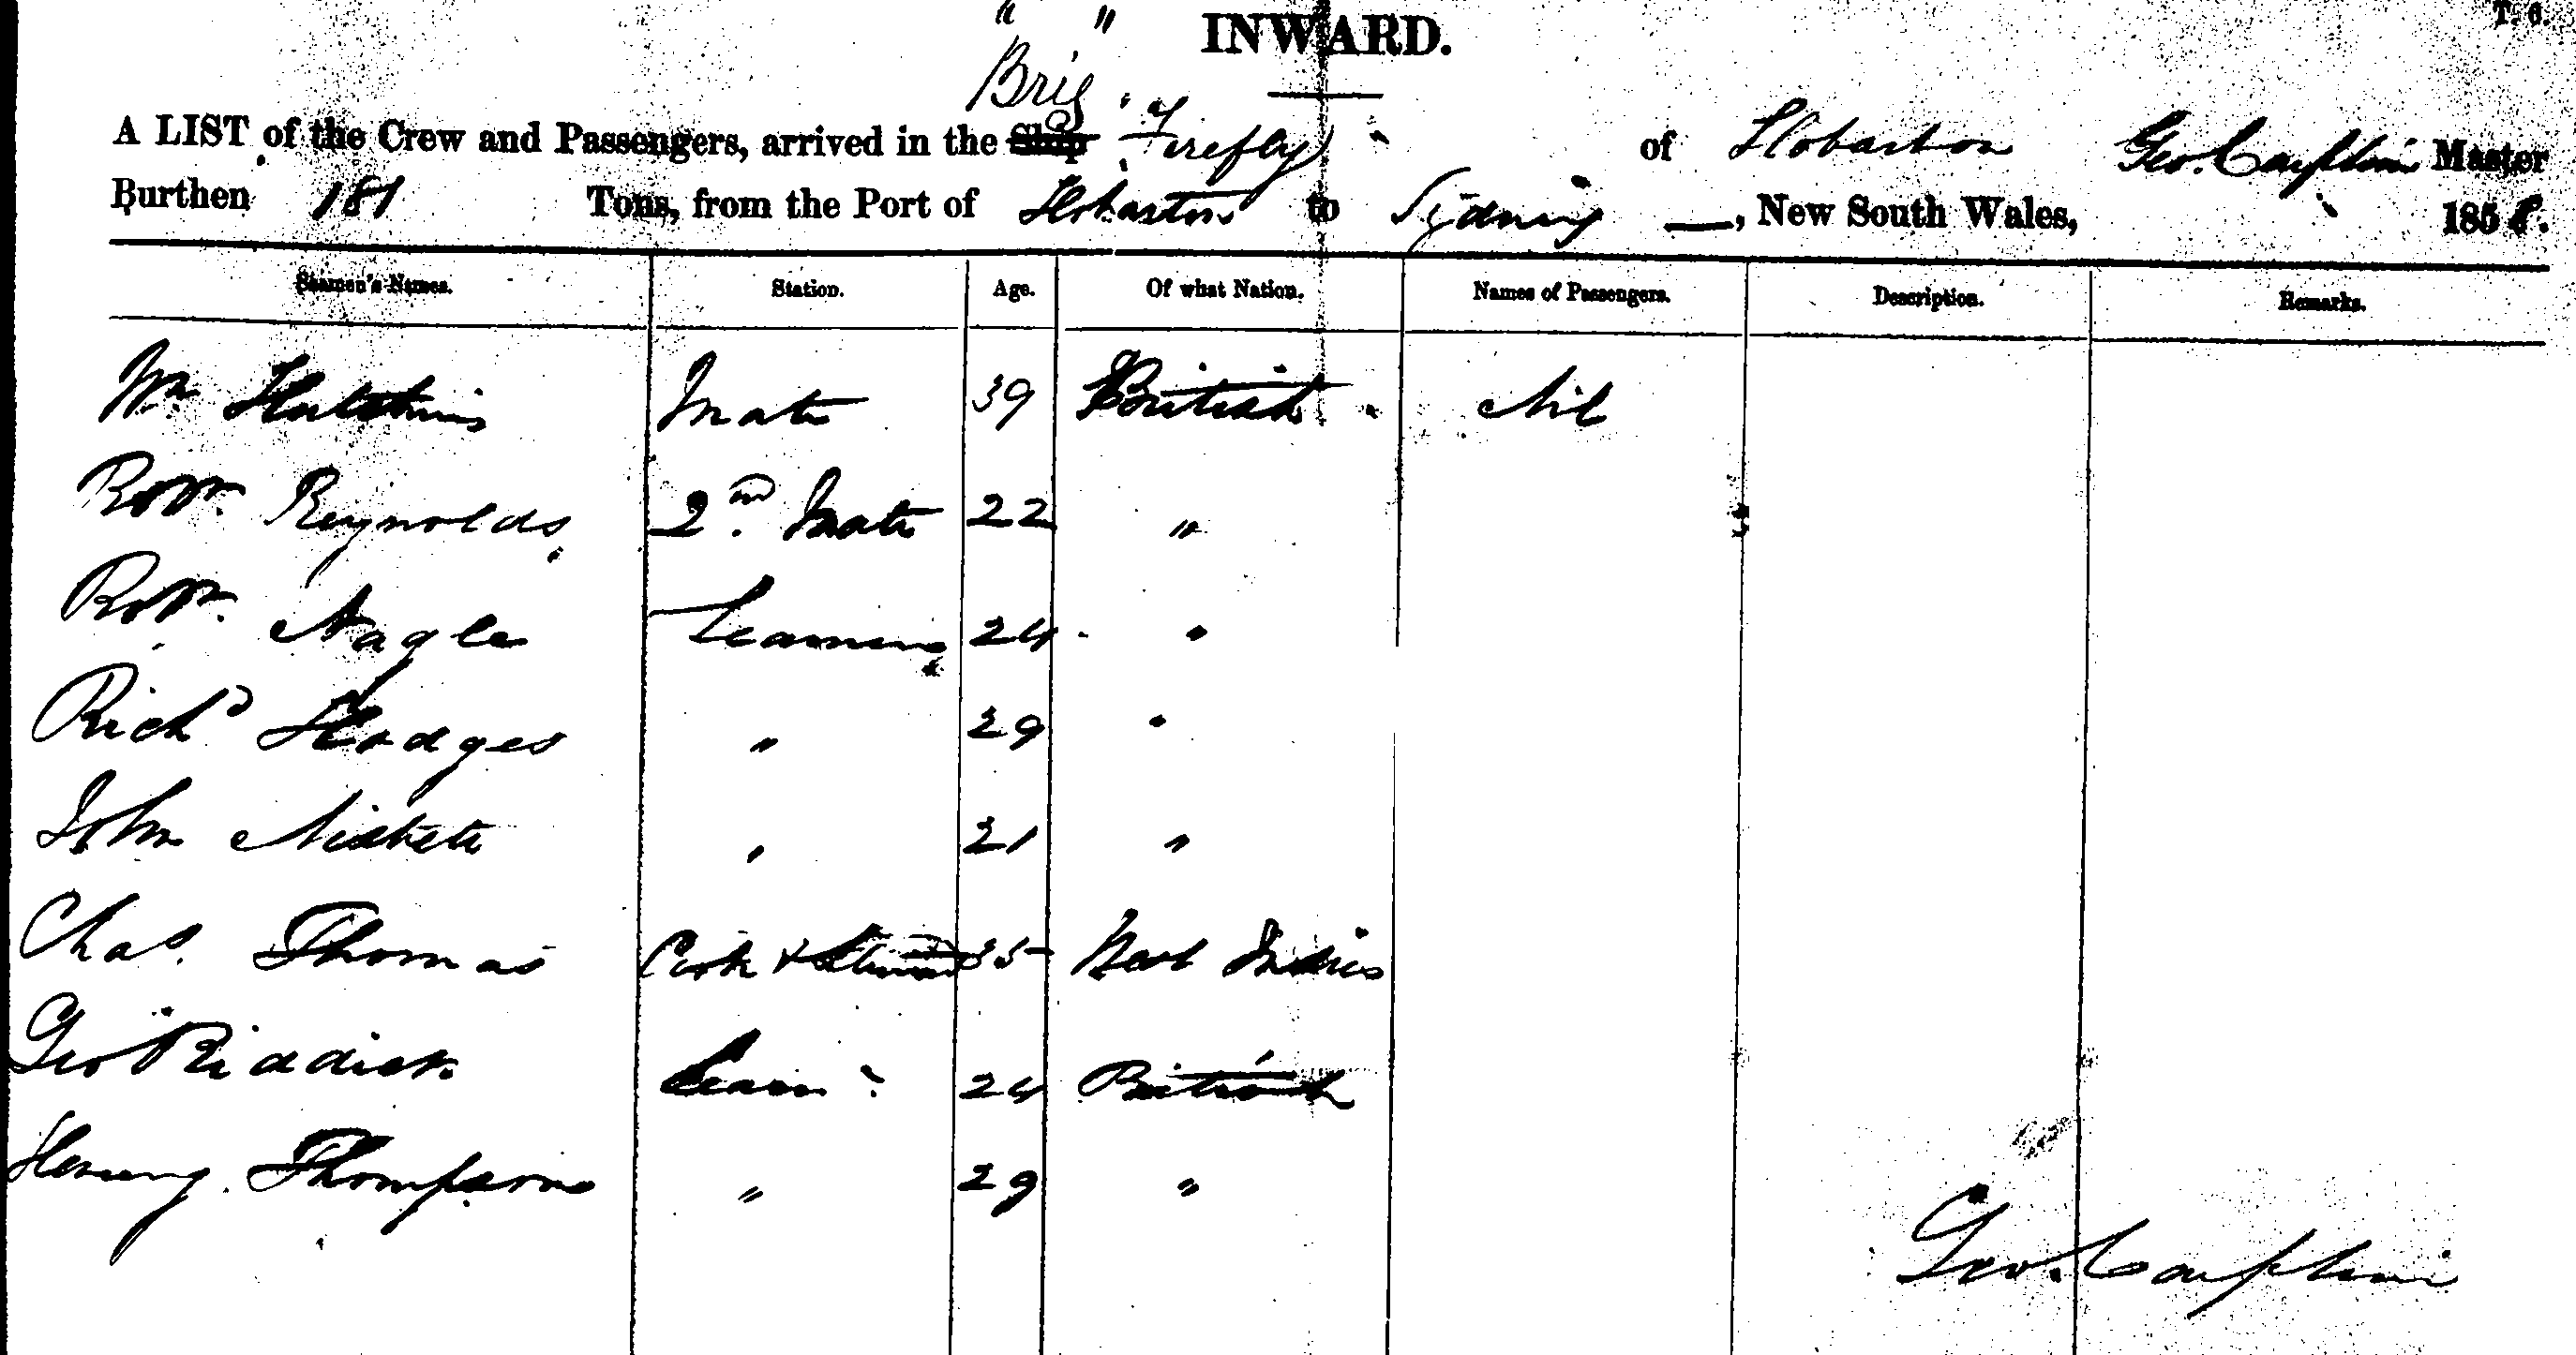 " "
INWARD.
T. 6.
Brig
A LIST of the Crew and Passengers, arrived in the Ship "Firefly" of Hobarton Geo. Master
Burthen 181 Tons, from the Port of Hobarton to Sydney —, New South Wales, 1858.
Seamen's Names. Station. Age. Of what Nation. Names of Passengers. Description. Remarks.
Wm Mate 39 British Nil
Robt. Reynolds 2nd. Mate 22 "
Robt. Nagle Seaman 24 "
Richd Hodges " 29 "
John " 21 "
Chas. Thomas Cook & Steward 35 West Indies
Geo Riddick Seam 24 British
Henry Thompson " 29 "
Geo.